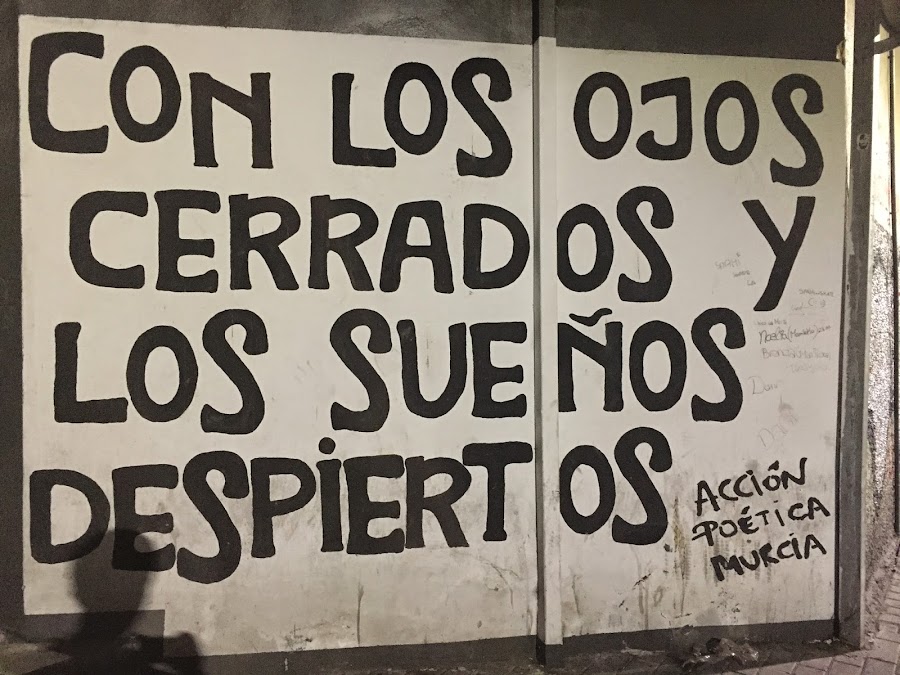 CON LOS OJOS
CERRADOS Y
LOS SUEÑOS
DESPiERTOS
ACCIÓN
POÉTICA
MURCIA